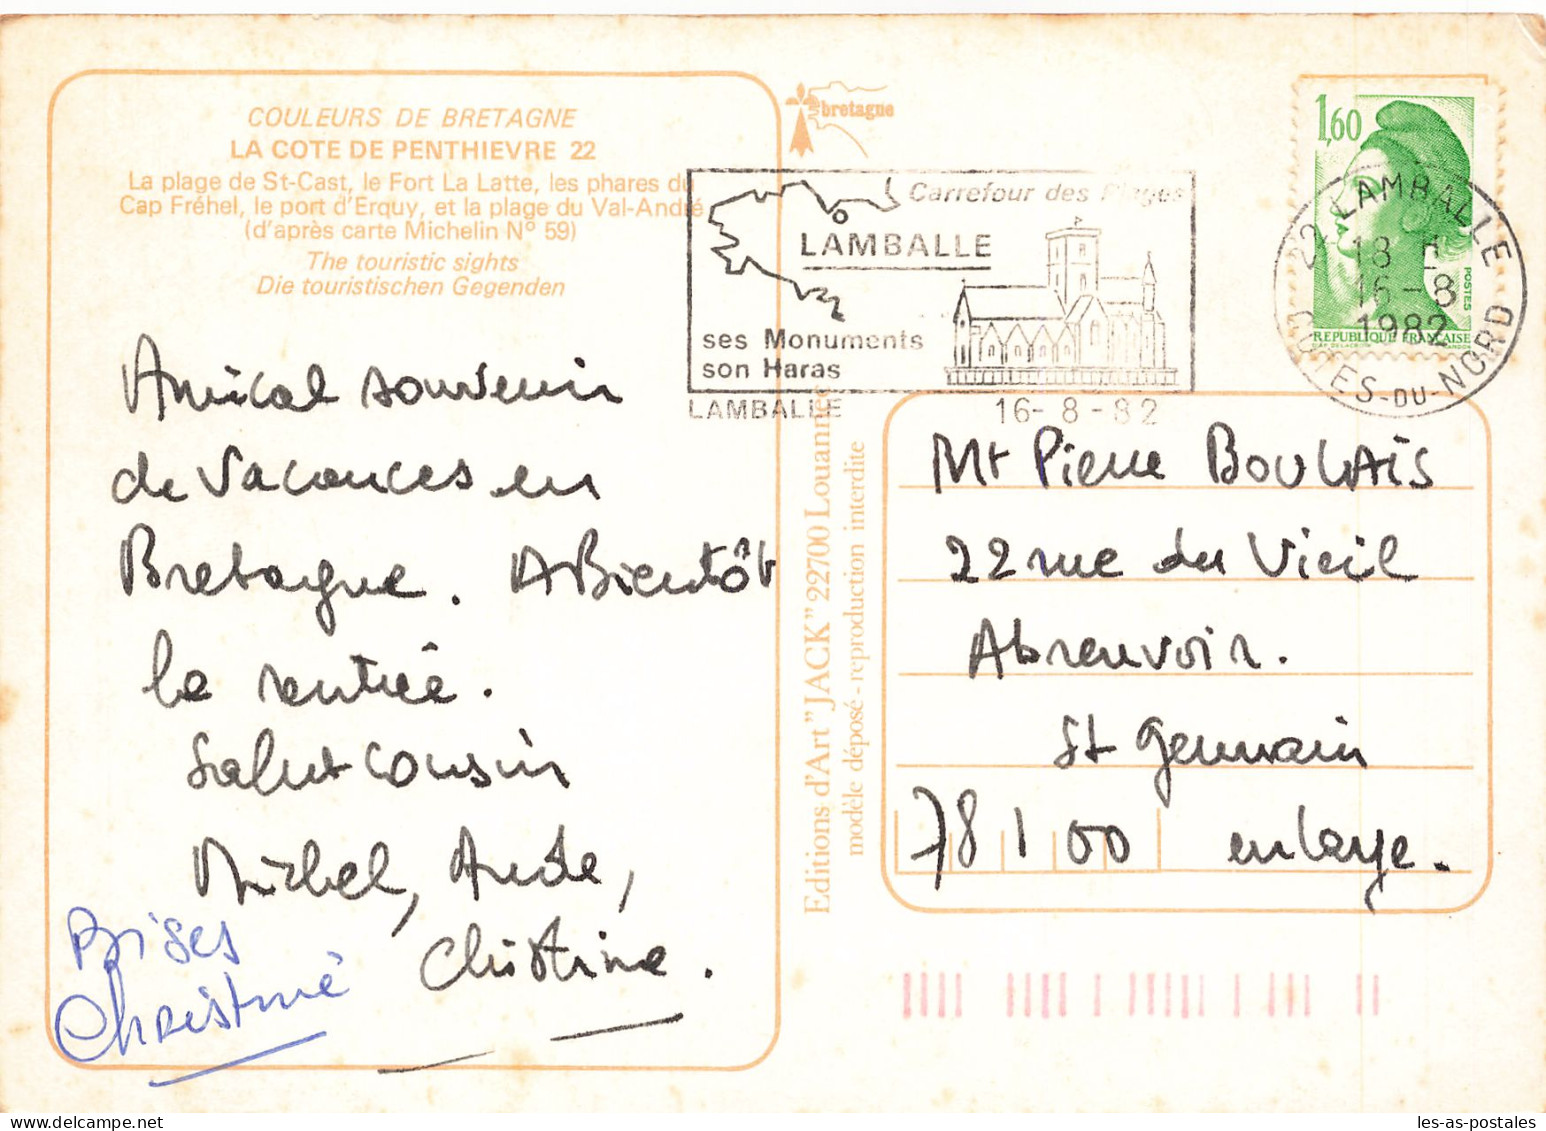 COULEURS DE BRETAGNE
LA COTE DE PENTHIEVRE 22
La plage de St-Cast, le Fort La Latte, les phares du
Cap Fréhel, le port d'Erquy, et la plage du Val-André
(d'après carte Michelin N° 59)
The touristic sights
Die touristischen Gegenden
Amical souvenir
de vacances en
Bretagne. A Bientôt
la rentrée.
Salut cousin
Michel, Aude,
Christine.
Bises
Christine
bretagne
Carrefour des Plages
LAMBALLE
ses Monuments
son Haras
LAMBALLE 16-8-82
1,60
POSTES
REPUBLIQUE FRANÇAISE
22 LAMBALLE
18 H
16-8
1982
COTES-DU-NORD
Editions d'Art "JACK" 22700 Louannec
modèle déposé - reproduction interdite
Mr Pierre BOULAIS
22 rue du Vieil
Abreuvoir.
St Germain
78100 en Laye.
les-as-postales